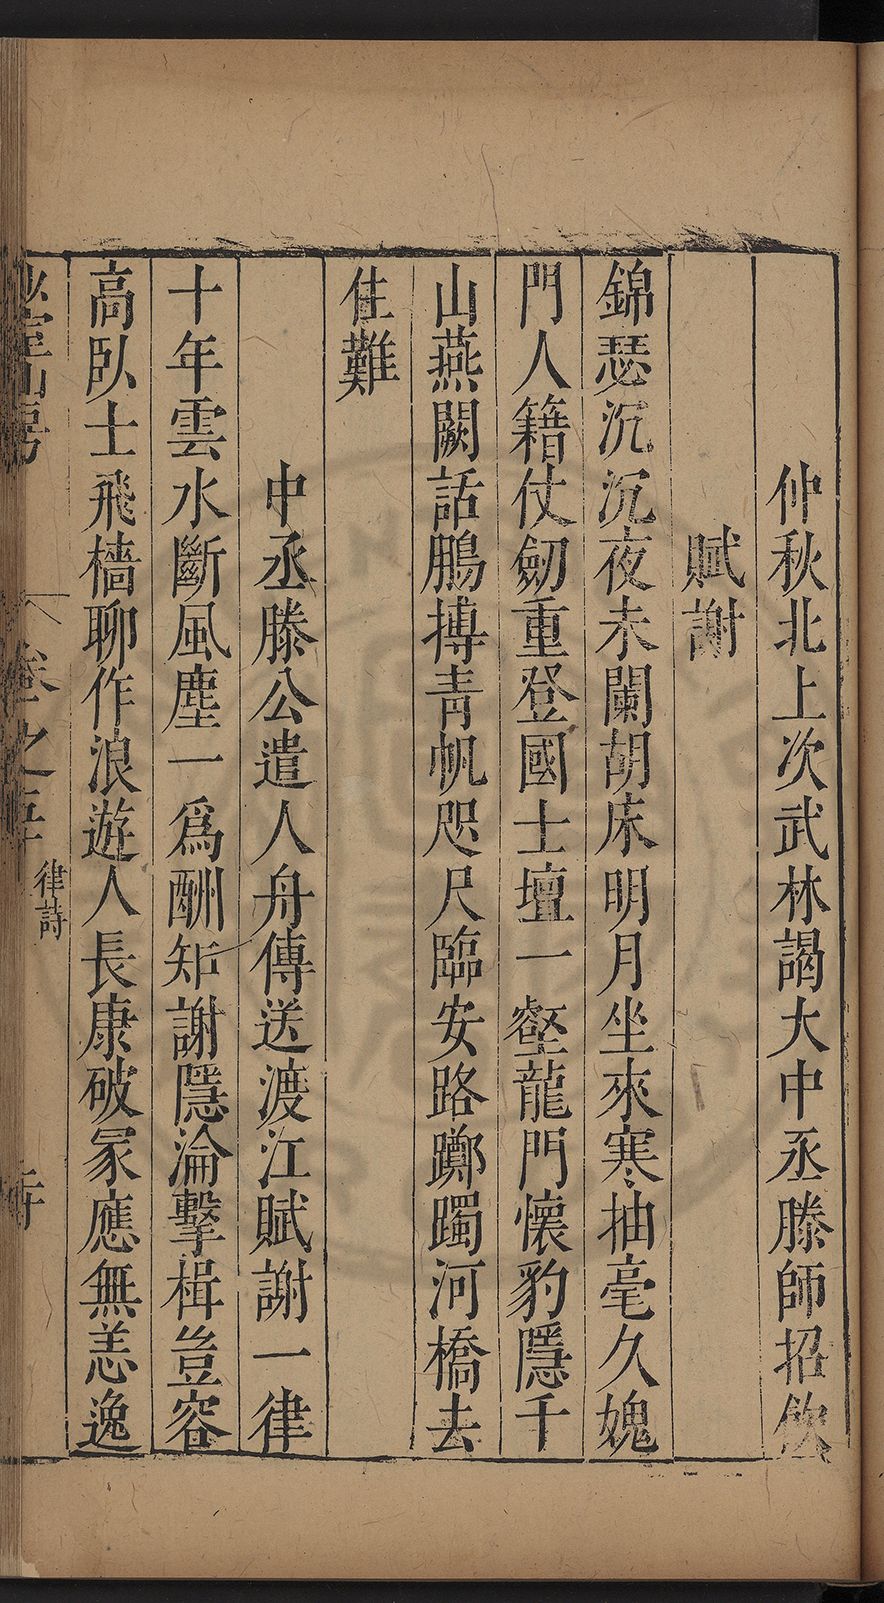 仲秋北上次武林謁大中丞滕師招飲
賦謝
錦瑟沉沉夜未闌胡床明月坐來寒抽毫久媿
門人籍仗劒重登國士壇一壑龍門懷豹隱千
山燕闕話鵬摶青帆咫尺臨安路躑躅河橋去
住難
中丞滕公遣人舟傳送渡江賦謝一律
十年雲水斷風塵一爲酬知謝隱淪擊楫豈容
高臥士飛檣聊作浪遊人長康破冢應無恙逸
卷之五 律詩